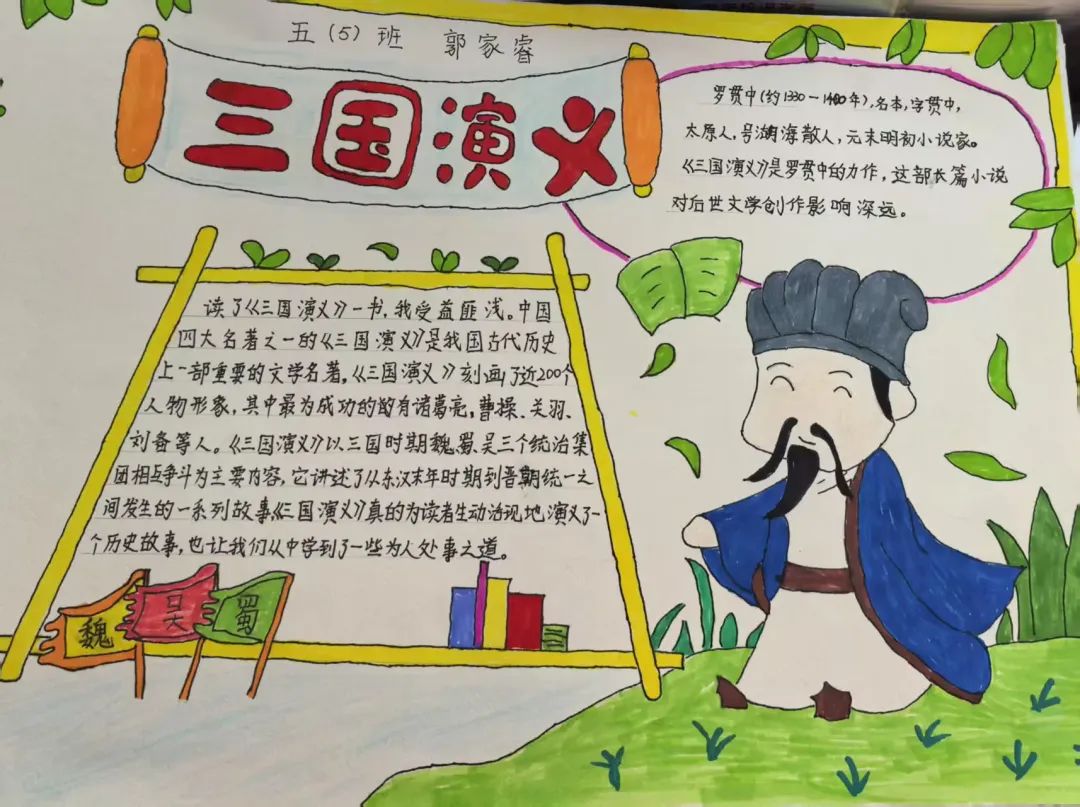 五(5)班 郭家睿
三国演义
罗贯中(约1330-1400年),名本,字贯中,
太原人,号湖海散人,元末明初小说家。
《三国演义》是罗贯中的力作,这部长篇小说
对后世文学创作影响深远。
读了《三国演义》一书,我受益匪浅。中国
四大名著之一的《三国演义》是我国古代历史
上一部重要的文学名著。《三国演义》刻画了近200个
人物形象,其中最为成功的的有诸葛亮,曹操、关羽、
刘备等人。《三国演义》以三国时期魏、蜀、吴三个统治集
团相互争斗为主要内容,它讲述了从东汉末年时期到晋朝统一之
间发生的一系列故事《三国演义》真的为读者生动治现地演义了一
个历史故事,也让我们从中学到了一些为人处事之道。
魏
吴
蜀